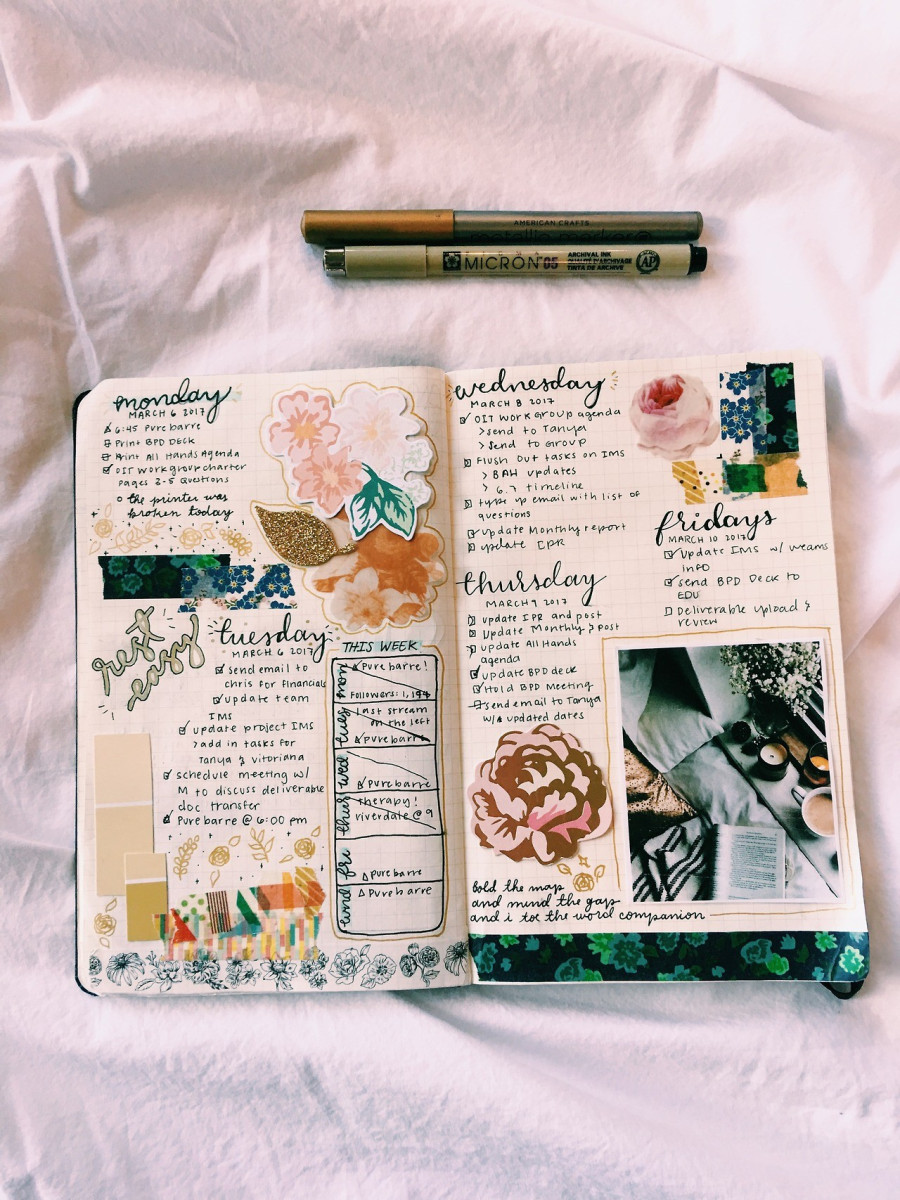 AMERICAN CRAFTS
MICRON 05
ARCHIVAL INK
QUALITÉ D'ARCHIVAGE
TINTA DE ARCHIVE
AP
monday
MARCH 6 2017
6:45 Pure barre
Print BPD DECK
Print All Hands Agenda
OIT workgroup charter
pages 2-5 Questions
the printer was
broken today
rest
easy
tuesday
MARCH 6 2017
send email to
chris for financials
update team
IMS
update project IMS
>add in tasks for
Tanya & Vitoriana
schedule meeting w/
M to discuss deliverable
doc transfer
Pure barre @ 6:00 pm
THIS WEEK
mon
Pure barre!
Followers: 1,194
tues
last stream
on the left
Pure barre
wed
Pure barre
thurs
therapy!
riverdale @ 9
fri
Pure barre
Pure barre
wednesday
MARCH 8 2017
OIT Work Group agenda
>send to Tanya
>Send to Group
Flush Out tasks on IMS
> BAH updates
> 6.7 timeline
type up email with list of
questions
update Monthly report
update IPR
thursday
MARCH 9 2017
update IPR and post
Update Monthly & post
update All Hands
agenda
update BPD deck
Hold BPD Meeting
send email to Tanya
w/ updated dates
fridays
MARCH 10 2017
Update IMS w/ weams
info
send BPD Deck to
EDU
Deliverable upload &
review
Bold the map
and mind the gap
and i toe the word companion